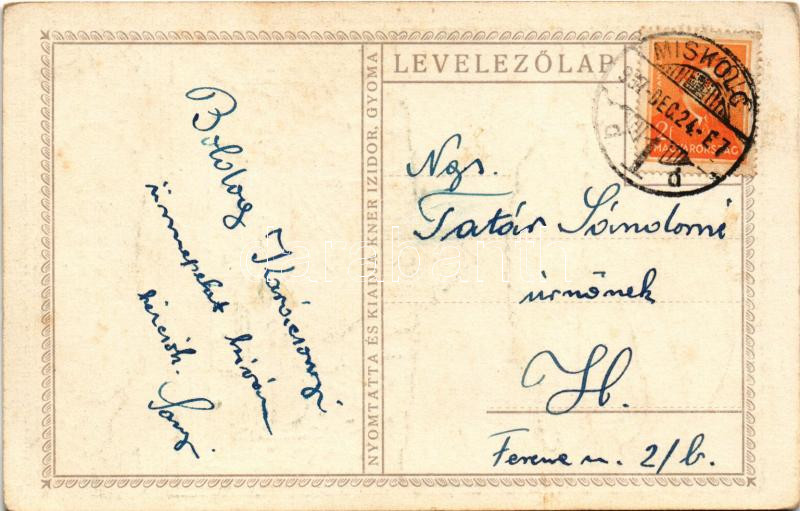 LEVELEZŐLAP
MISKOLC
937 DEC. 24
MAGYARORSZÁG
Boldog Karácsonyi
ünnepeket kíván
Nagys.
Tatár Sándorné
úrnőnek
H.
Ferenc u. 2/b.
NYOMTATTA ÉS KIADJA KNER IZIDOR, GYOMA